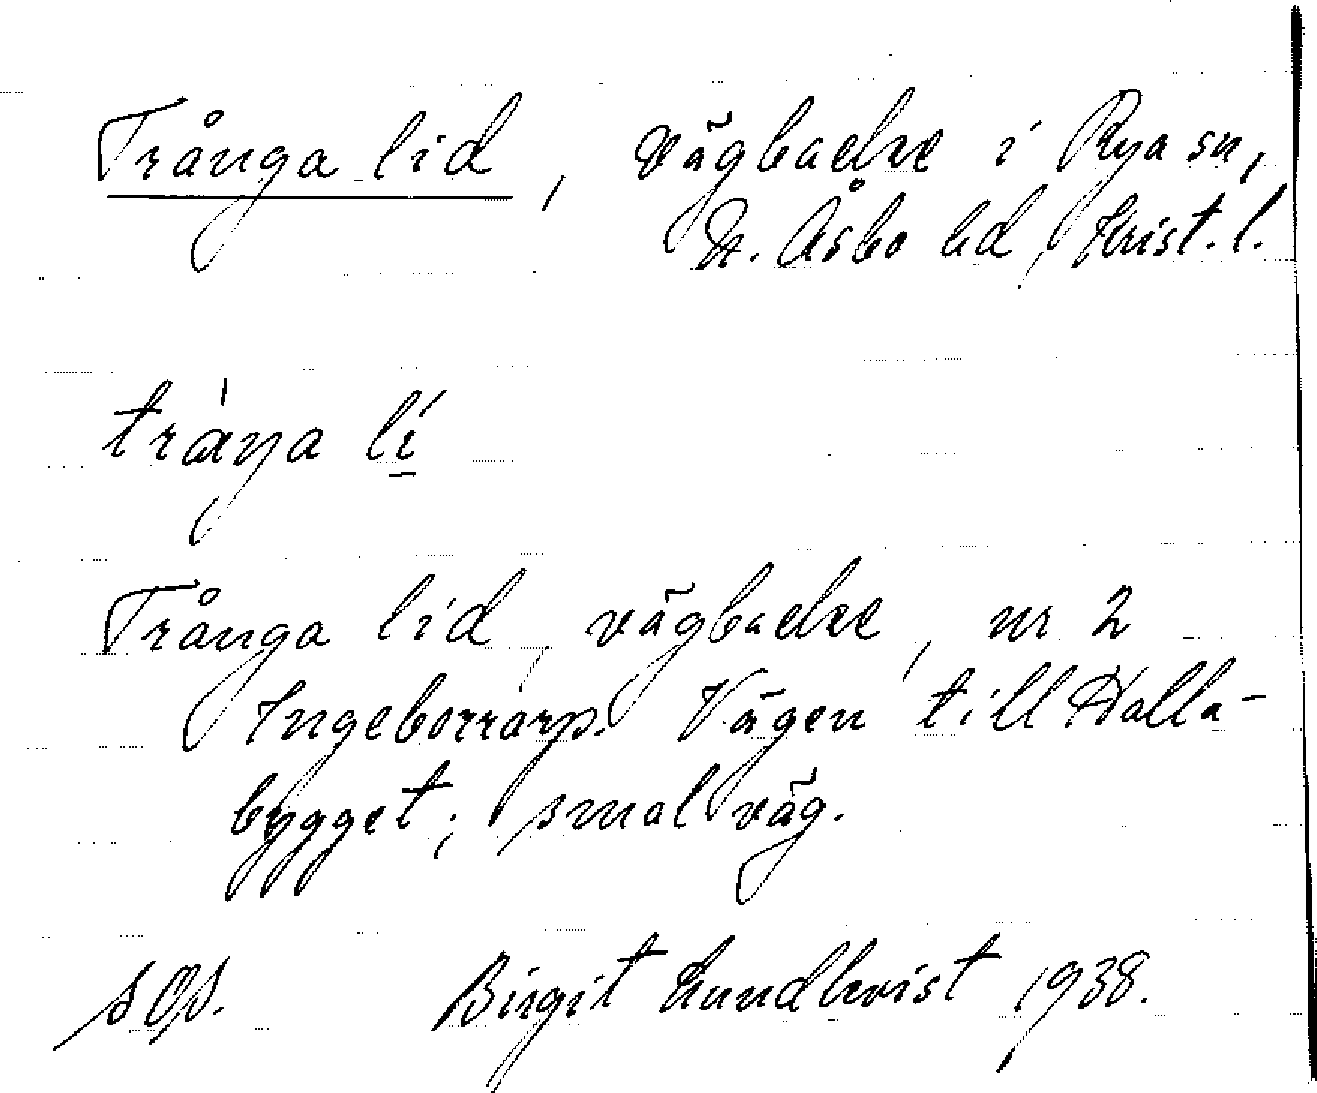 Trånga lid, vägbacke i Rya sn,
N. Åsbo hd, Krist. l.
tráŋa lí
Trånga lid, vägbacke, nr 2
Ingeborrarp. Vägen till Halla-
bygget; smal väg.
Birgit Lundkvist 1938.